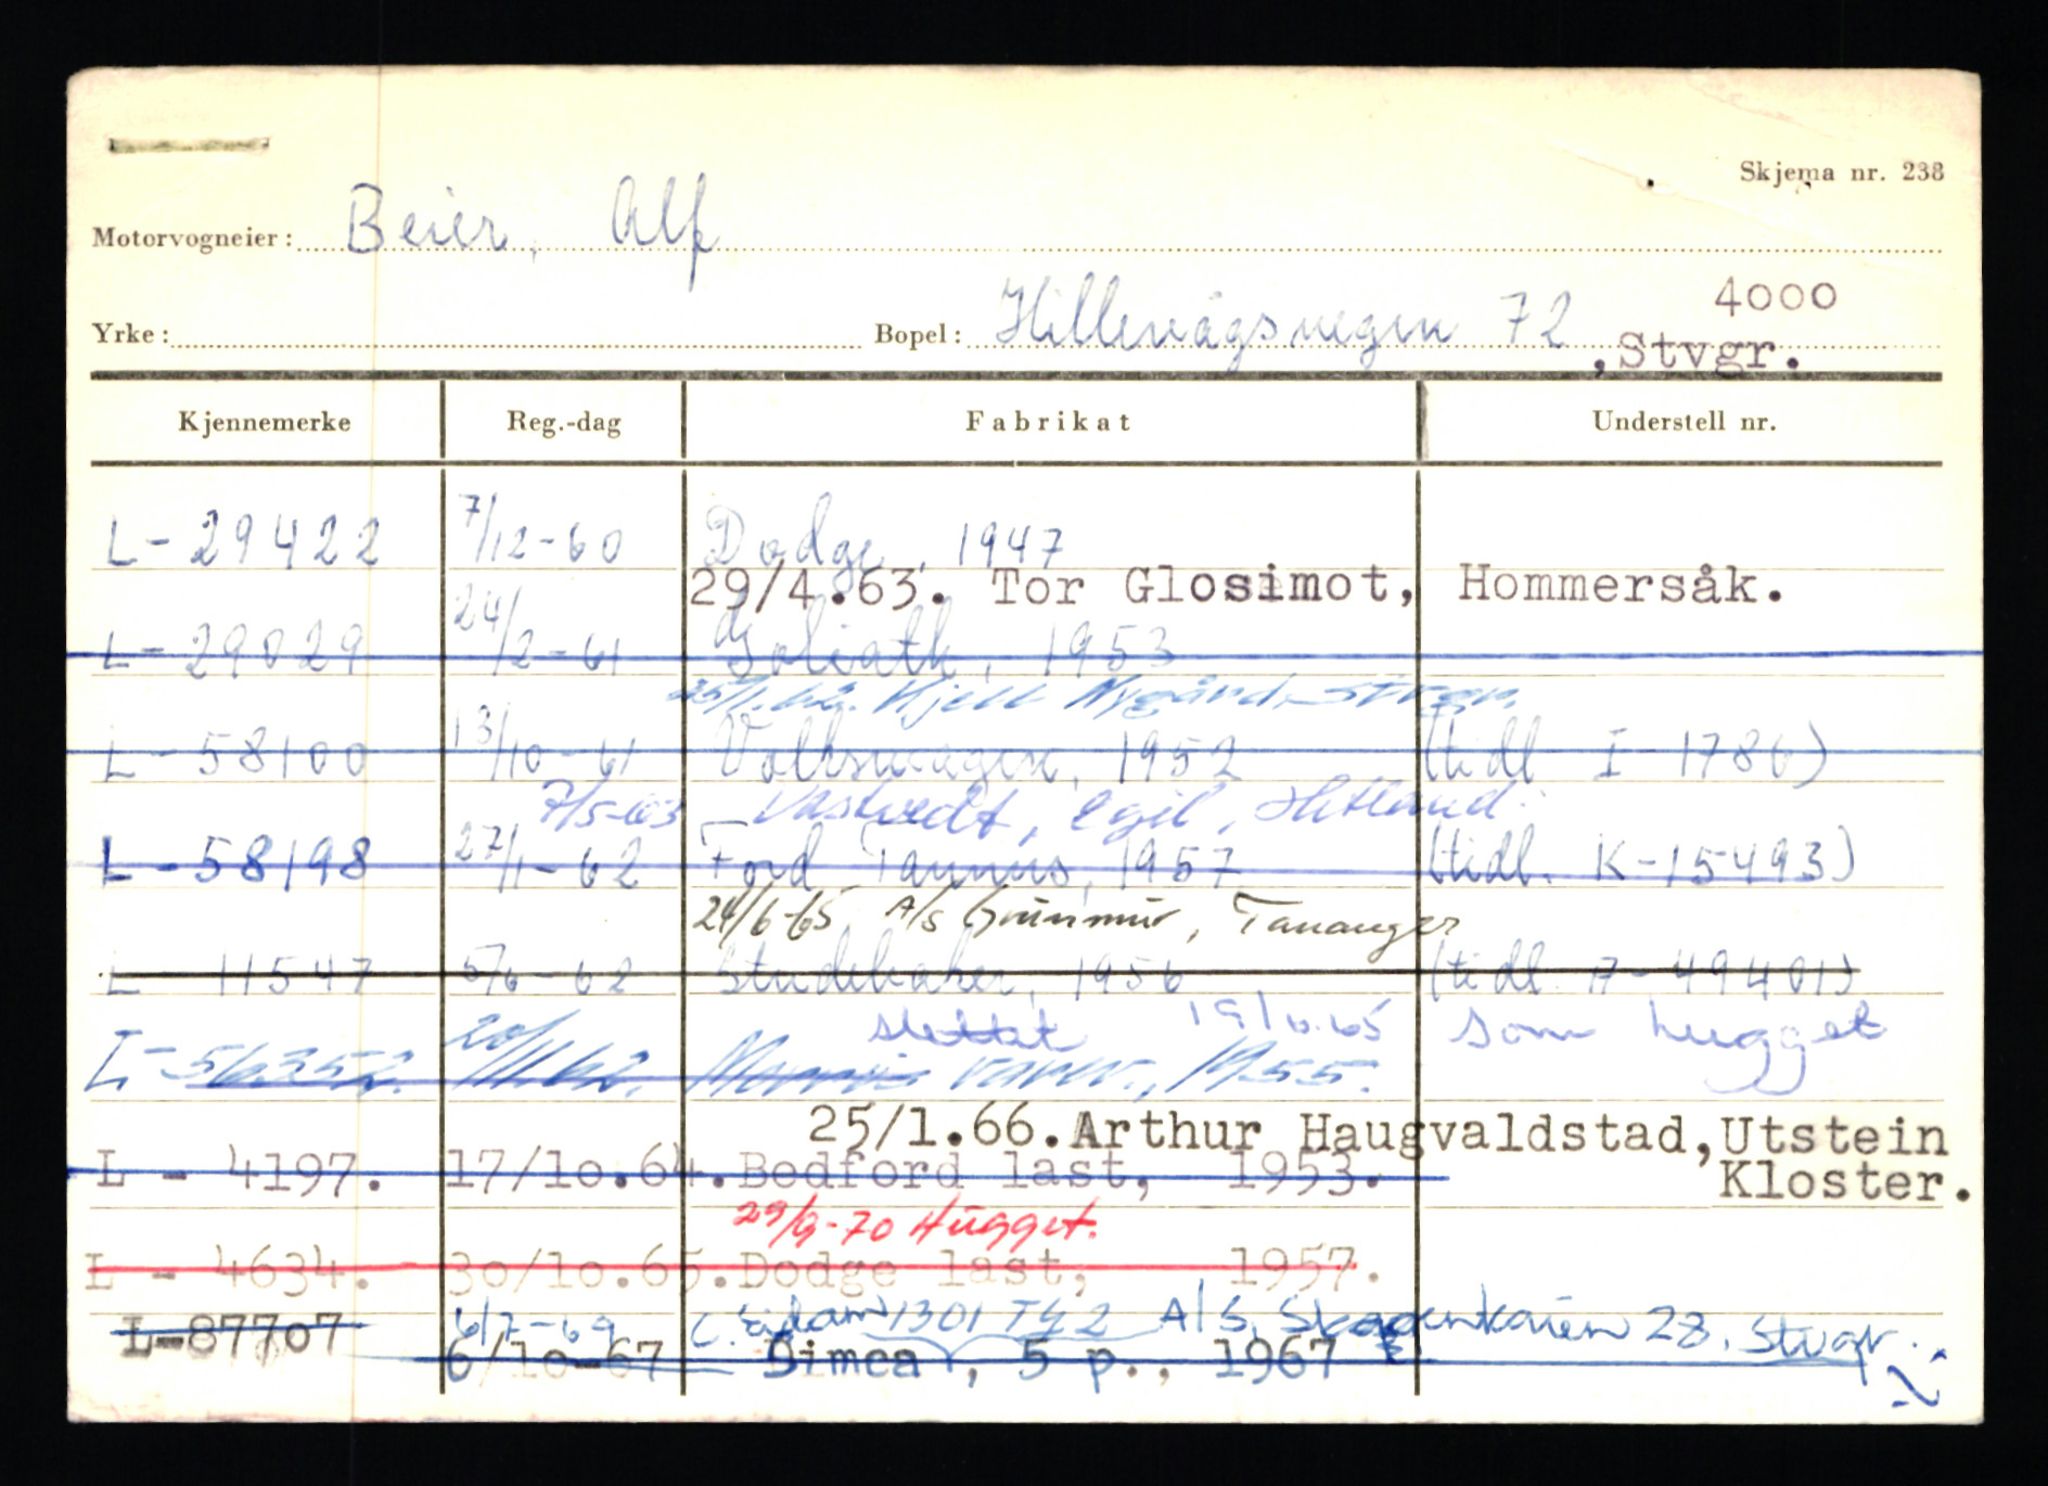 Skjema nr. 238
Motorvogneier: Beier, Alf
4000
Yrke: Bopel: Hillevågsvegen 72, Stvgr.
Kjennemerke Reg.-dag Fabrikat Understell nr.
L-29422 7/12-60 Dodge, 1947
29/4.63. Tor Glosimot, Hommersåk.
L-29029 24/2-61 Goliath, 1953
25/1.62. Kjell Nygård, Strgn.
L-58100 13/10-61 Volkswagen, 1952 (tidl I-1786)
7/5-63 Vastvedt, Egil, Hetland.
L-58198 27/1-62 Ford Taunus, 1957 (tidl. K-15493)
24/6-65 A/S Grunnmur, Tananger
L-11547 5/6-62 Studebaker, 1956 (tidl. A-49401)
slettet 19/10.65 som hugget
L-56352. 20/11.62. Morris varev., 1955.
25/1.66. Arthur Haugvaldstad, Utstein Kloster.
L - 4197. 17/10.64. Bedford last, 1953.
29/9-70 Hugget.
L - 4634. 30/10.65. Dodge last, 1957.
6/7-69 C. Eidam 1301 A/S, Skagenkaien 28. Stvgr.
L-87707 6/10-67 Simca, 5 p., 1967